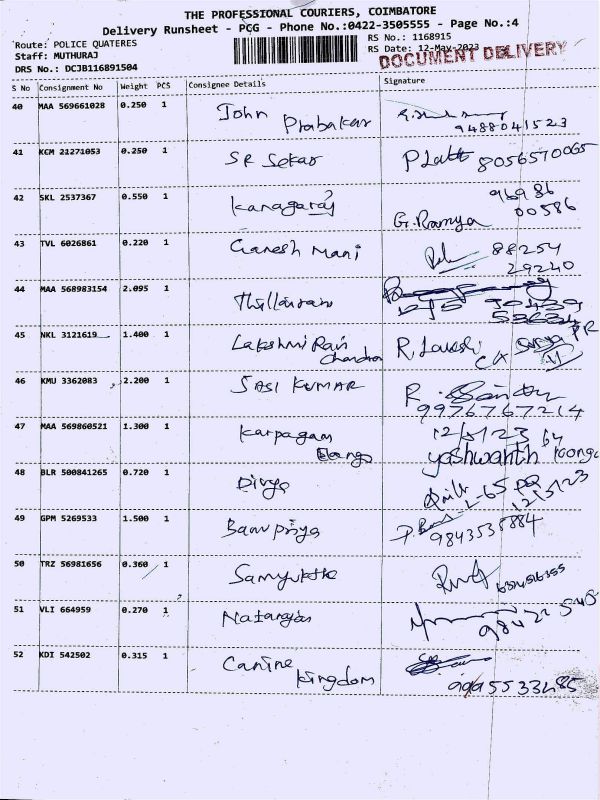 THE PROFESSIONAL COURIERS, COIMBATORE
Delivery Runsheet - PCG - Phone No.:0422-3505555 - Page No.:4
Route: POLICE QUATERES
RS No.: 1168915
Staff: MUTHURAJ
RS Date: 12-May-2023
DRS No.: DCJB116891504
DOCUMENT DELIVERY
S No Consignment No Weight PCS Consignee Details Signature
40 MAA 569661028 0.250 1 John Prabakar
9488041523
41 KCM 21271053 0.250 1 SR Sekar 8056570065
42 SKL 2537367 0.550 1 Kanagaraj G. Ramya 96986
00586
43 TVL 6026861 0.220 1 Ganesh Mani 88254
29240
44 MAA 568983154 2.095 1
45 NKL 3121619 1.400 1 Lakshmi Ram
Chandra
46 KMU 3362083 2.200 1 SASI KUMAR R.
9976767214
47 MAA 569860521 1.300 1 Karpagam 12/5/23 by
Elango yashwanth
48 BLR 500841265 0.720 1 Divya
12/5/23
49 GPM 5269533 1.500 1 Banupriya
9843538884
50 TRZ 56981656 0.360 1 Samyuktha
51 VLI 664959 0.270 1 Natarajan
52 KDI 542502 0.315 1 Canine
Kingdom